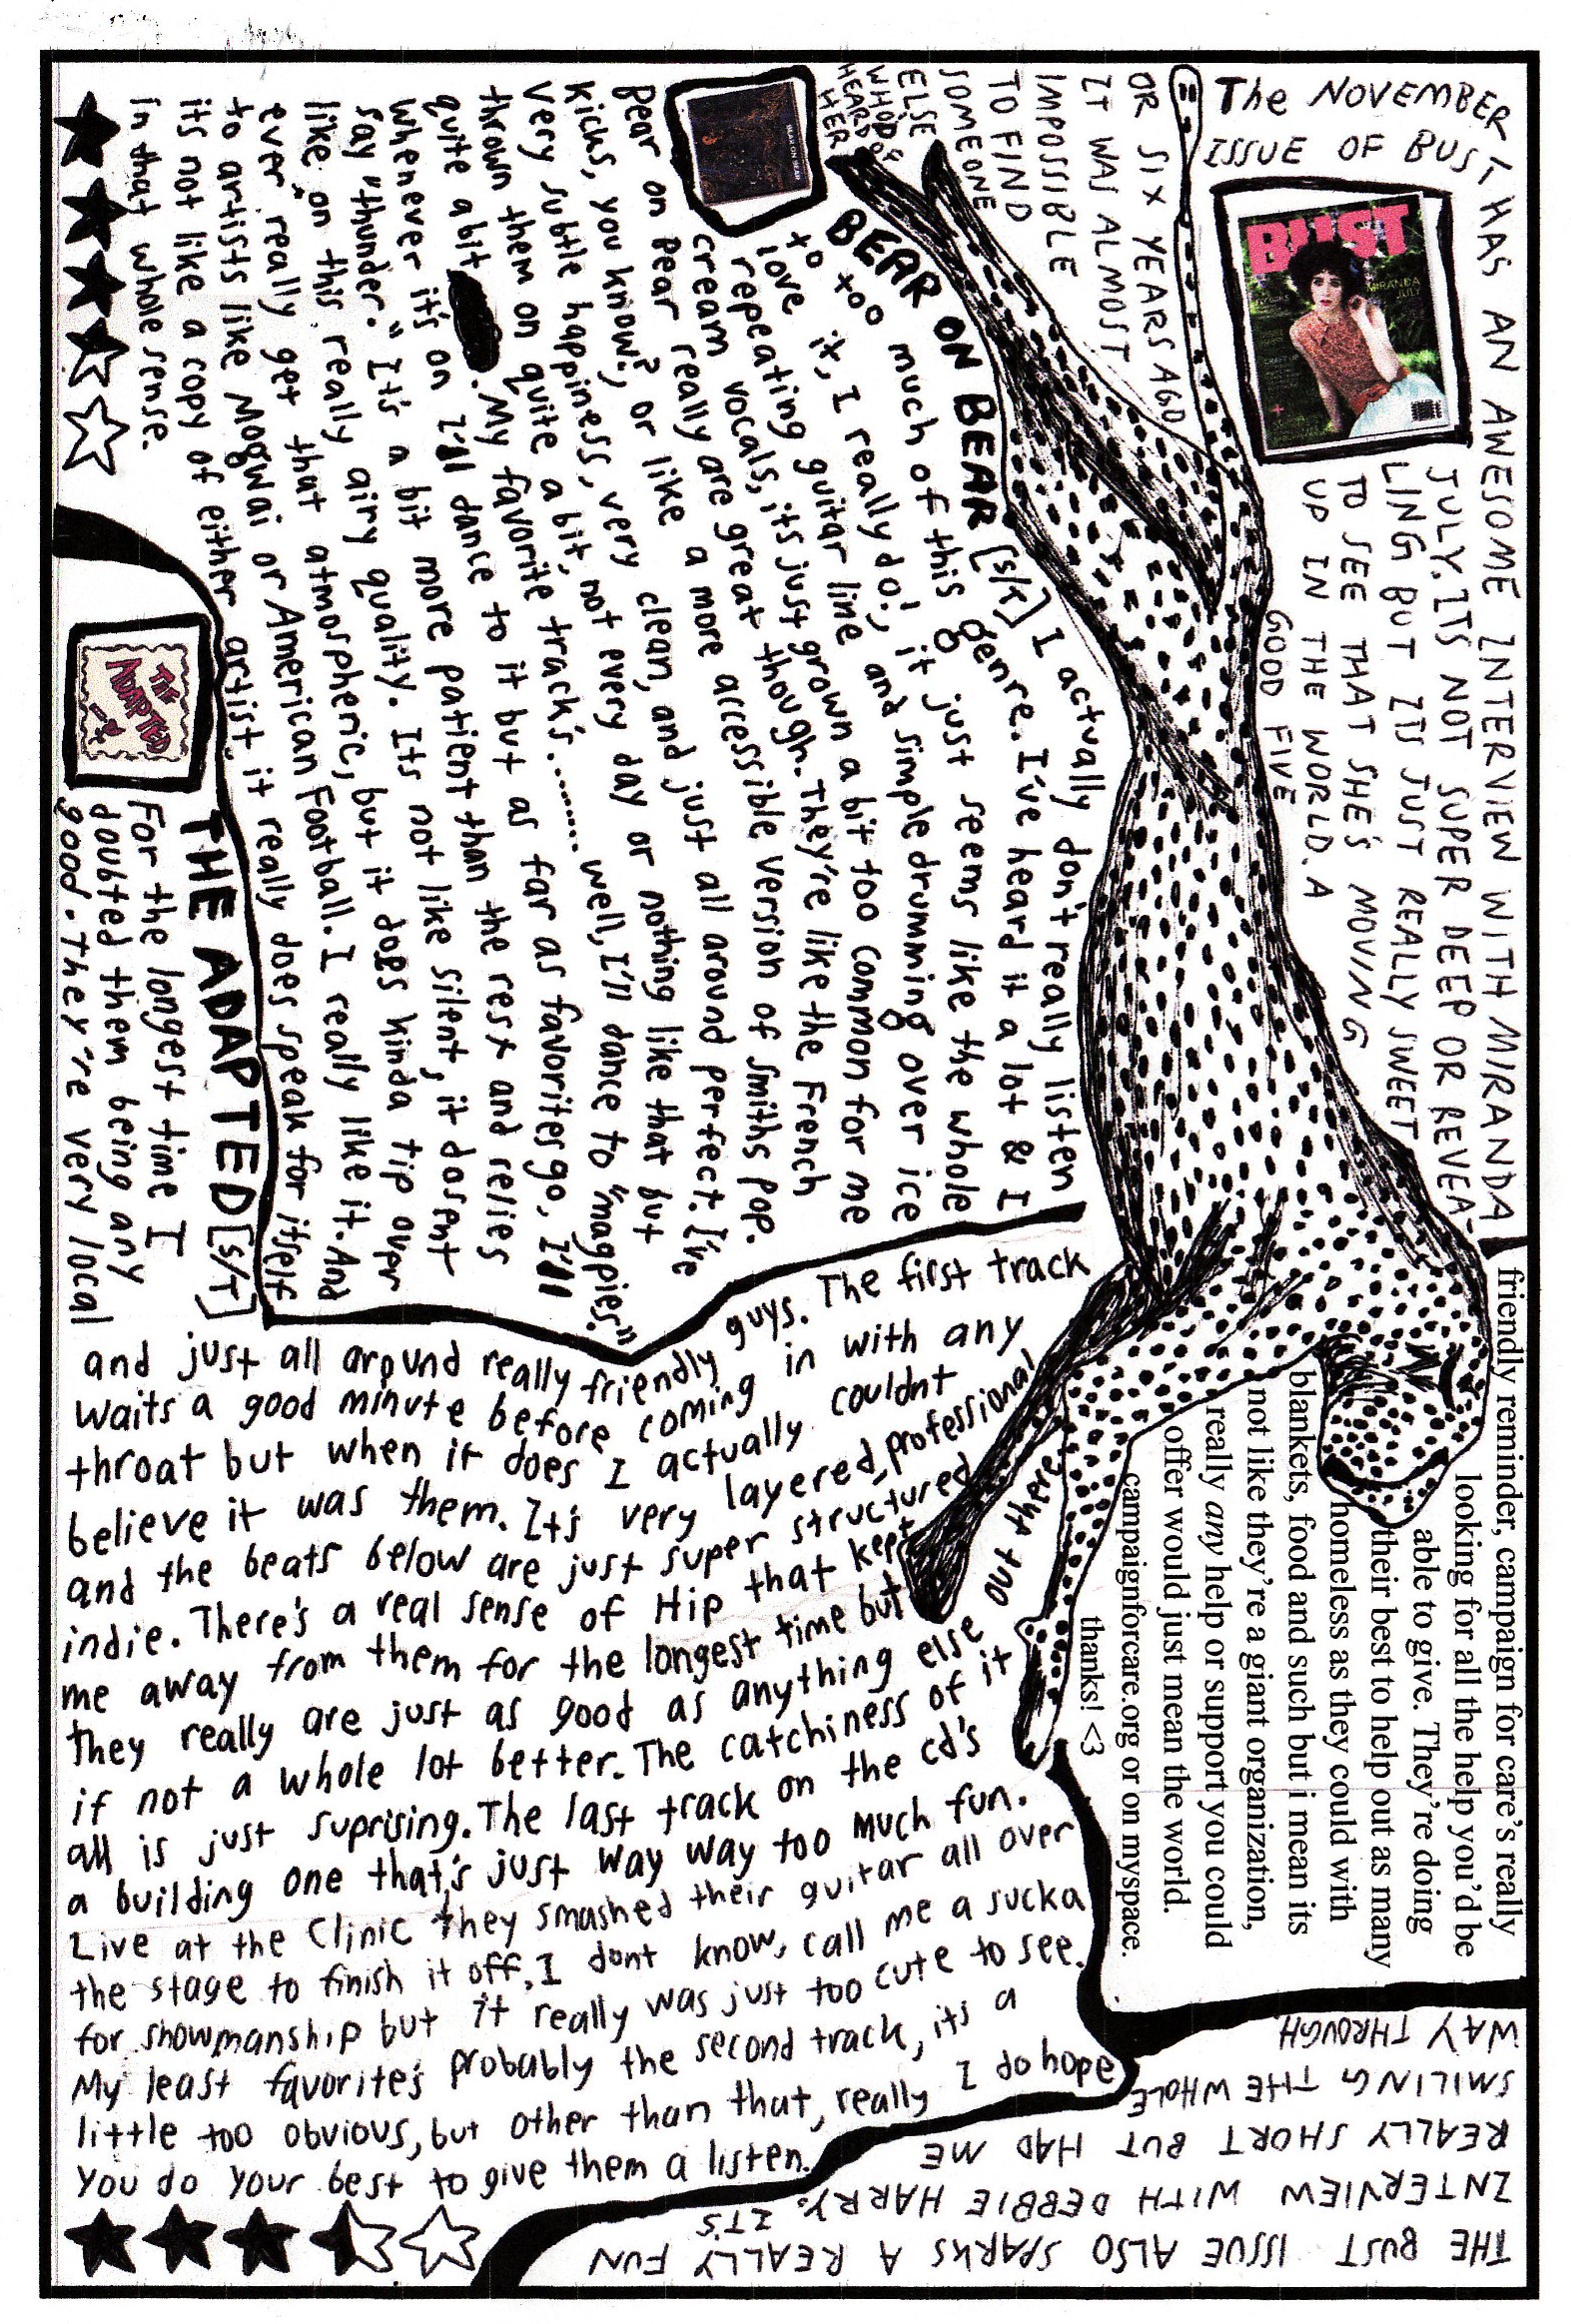 The NOVEMBER
ISSUE OF BUST HAS AN AWESOME INTERVIEW WITH MIRANDA
JULY. ITS NOT SUPER DEEP OR REVEA-
LING BUT ITS JUST REALLY SWEET
TO SEE THAT SHE'S MOVING
UP IN THE WORLD. A
GOOD FIVE
OR SIX YEARS AGO
IT WAS ALMOST
IMPOSSIBLE
TO FIND
SOMEONE
ELSE
WHO'D OF
HEARD OF
HER
BUST
MIRANDA
JULY
BEAR ON BEAR [s/t] I actually don't really listen
to too much of this genre. I've heard it a lot & I
love it, I really do; it just seems like the whole
repeating guitar line and simple drumming over ice
cream vocals, its just grown a bit too common for me
Bear on Bear really are great though. They're like the French
Kicks, you know? or like a more accessible version of Smiths pop.
very subtle happiness, very clean, and just all around perfect. I've
thrown them on quite a bit, not every day or nothing like that but
quite a bit. My favorite track's........ well, I'll dance to "magpies."
Whenever it's on I'll dance to it but as far as favorites go, I'll
say "thunder." It's a bit more patient than the rest and relies
like on this really airy quality. Its not like silent, it dosent
ever really get that atmospheric, but it does kinda tip over
to artists like Mogwai or American Football. I really like it. And
its not like a copy of either artist, it really does speak for itself
in that whole sense.
BEAR ON BEAR
THE ADAPTED
THE ADAPTED [S/T]
For the longest time I
doubted them being any
good. They're very local
and just all around really friendly guys. The first track
waits a good minute before coming in with any
throat but when it does I actually couldnt
believe it was them. It's very layered, professional
and the beats below are just super structured
indie. There's a real sense of Hip that kept
me away from them for the longest time but
they really are just as good as anything else out there
if not a whole lot better. The catchiness of it
all is just suprising. The last track on the cd's
a building one that's just way way too much fun.
Live at the Clinic they smashed their guitar all over
the stage to finish it off. I dont know, call me a sucka
for showmanship but it really was just too cute to see.
My least favorite's probably the second track, its a
little too obvious, but other than that, really I do hope
you do your best to give them a listen.
friendly reminder, campaign for care's really
looking for all the help you'd be
able to give. They're doing
their best to help out as many
homeless as they could with
blankets, food and such but i mean its
not like they're a giant organization,
really any help or support you could
offer would just mean the world.
campaignforcare.org or on myspace.
thanks! <3
THE BUST ISSUE ALSO SPARKS A REALLY FUN
INTERVIEW WITH DEBBIE HARRY. IT'S
REALLY SHORT BUT HAD ME
SMILING THE WHOLE
WAY THROUGH